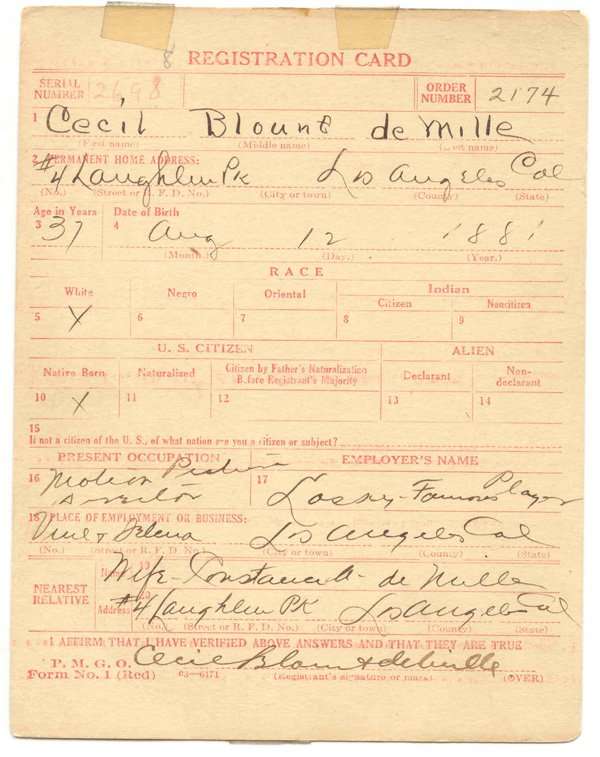 8 REGISTRATION CARD
SERIAL NUMBER 2698 ORDER NUMBER 2174
1 Cecil Blount de Mille
(First name) (Middle name) (Last name)
2 PERMANENT HOME ADDRESS:
#4 Laughlin Pk Los Angeles Cal
(No.) (Street or R. F. D. No.) (City or town) (County) (State)
Age in Years Date of Birth
3 37 4 Aug 12 1881
(Month.) (Day.) (Year.)
RACE
White Negro Oriental Indian
Citizen Noncitizen
5 X 6 7 8 9
U. S. CITIZEN ALIEN
Native Born Naturalized Citizen by Father's Naturalization Before Registrant's Majority Declarant Non-declarant
10 X 11 12 13 14
15
If not a citizen of the U. S., of what nation are you a citizen or subject?
PRESENT OCCUPATION EMPLOYER'S NAME
16 Motion Picture 17
Director Lasky-Famous Player
18 PLACE OF EMPLOYMENT OR BUSINESS:
Vine + Selena Los Angeles Cal
(No.) (Street or R. F. D. No.) (City or town) (County) (State)
NEAREST RELATIVE Name 19 Wife-Constance A de Mille
Address 20 #4 Laughlin Pk Los Angeles Cal
(No.) (Street or R. F. D. No.) (City or town) (County) (State)
I AFFIRM THAT I HAVE VERIFIED ABOVE ANSWERS AND THAT THEY ARE TRUE
P. M. G. O. Cecil Blount deMille
Form No. 1 (Red) c3—6171 (Registrant's signature or mark) (OVER)